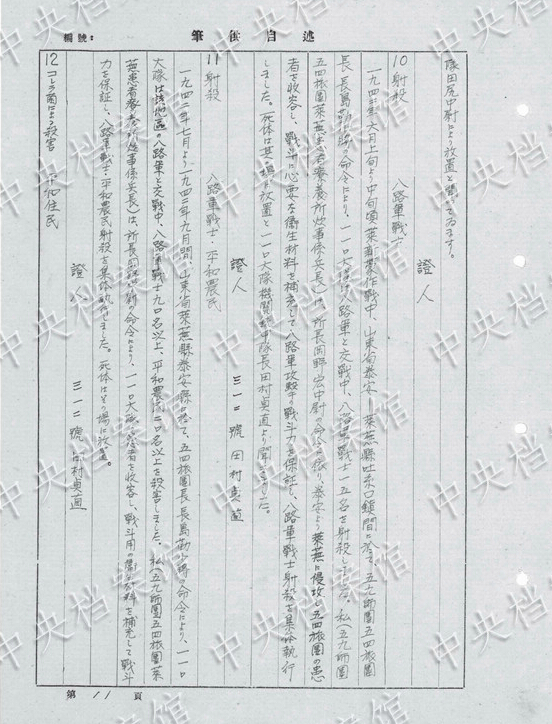 編號：
筆供自述
藤田尾中尉より放置と聞いてゐます。
證人
10 射殺 八路軍戦士
一九四二年六月上旬より中旬頃、萊蕪作戦中、山東省泰安—萊蕪縣吐糸口鎮間に於て、五九師團五四旅團
長長島勤少将の命令により、一一〇大隊は八路軍と交戦中、八路軍戦士一五名を射殺しました。私(五九師團
五四旅團萊蕪患者療養所炊事係兵長)は、所長岡野宏中尉の命令に依り、泰安より萊蕪に侵攻し五四旅團の患
者を收容し、戦斗に必要な衛生材料を補充して八路軍攻撃の戦斗力を保証し、八路軍戦士射殺を集体執行
しました。死体は其の場に放置と一一〇大隊機関銃中隊長田村貞直より聞きました。
證人 三一二號 田村貞直
11 射殺 八路軍戦士・平和農民
一九四二年七月より一九四二年九月間、山東省萊蕪縣泰安縣に於て、五四旅團長長島勤少将の命令により、一一〇
大隊は該地區の八路軍と交戦中、八路軍戦士九〇名以上、平和農民二〇名以上を殺害しました。私(五九師團五四旅團萊
蕪患者療養所炊事係兵長)は、所長岡野宏中尉の命令により、一一〇大隊の患者を收容し、戦斗用の衛生材料を補充して戦斗
力を保証し、八路軍戦士・平和農民射殺を集体執行しました。死体はその場に放置。
證人 三一二號 田村貞直
12 コレラ菌による殺害 平和住民
第 11 頁
中央档案馆